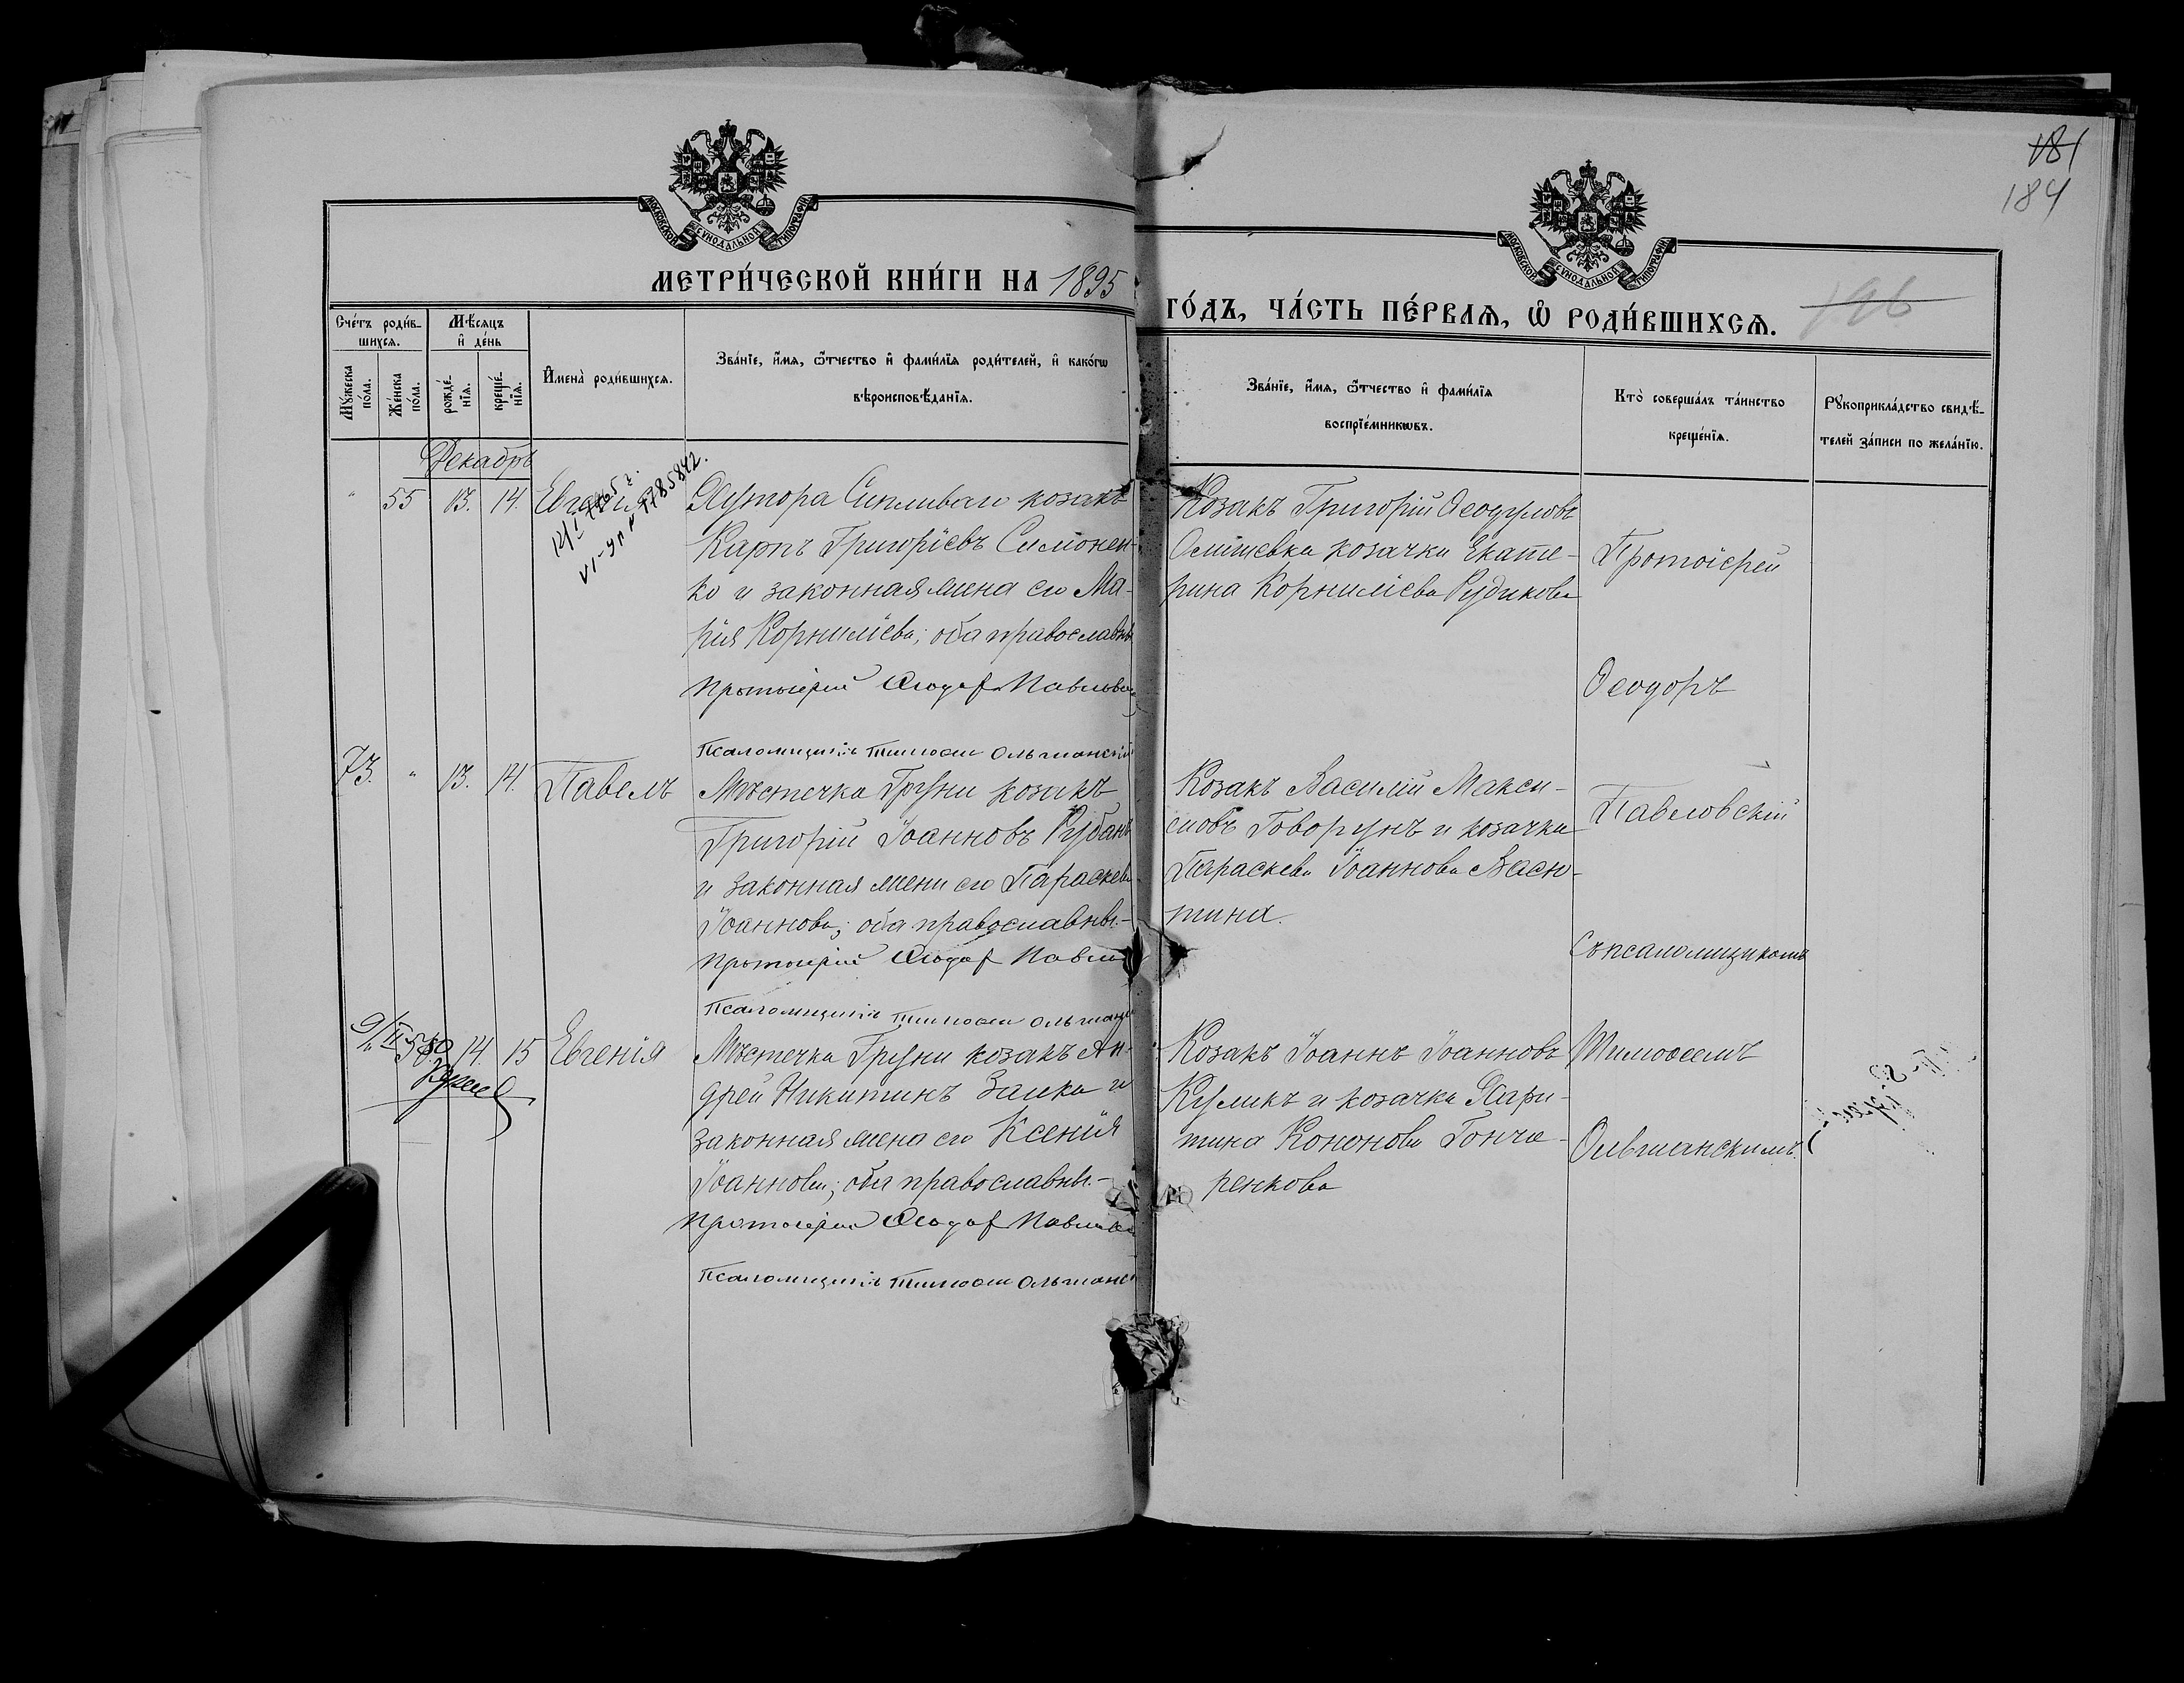 181
184
МОСКОВСКОЙ СѴНОДАЛЬНОЙ ТИПОГРАФІИ
МОСКОВСКОЙ СѴНОДАЛЬНОЙ ТИПОГРАФІИ
МЕТРИ́ЧЕСКОЙ КНИ́ГИ НА 1895
ГО́ДЪ, ЧА́СТЬ ПЕ́РВАѦ, Ѡ҆ РОДИ́ВШИХСѦ.
196
Сче́тъ роди́в-
шихсѧ.
Мѣ́сѧцъ
и҆ де́нь
Мꙋ́жеска
по́ла.
Же́нска
по́ла.
рожде́-
нїѧ.
креще́-
нїѧ.
И҆мена̀ роди́вшихсѧ.
Зва́нїе, и҆́мѧ, ѻ҆́тчество и҆ фами́лїѧ роди́телей, и҆ како́гѡ
вѣроисповѣ́данїѧ.
Зва́нїе, и҆́мѧ, ѻ҆́тчество и҆ фами́лїѧ
воспрїе́мникѡвъ.
Кто̀ соверша́лъ та́инство
креще́нїѧ.
Рꙋкоприкла́дство свидѣ́-
телей за́писи по жела́нїю.
Декабрь
55 13. 14. Евгенія
Хутора козакъ
Карпъ Григоріевъ Симонен-
ко и законная жена его Ма-
рія Корниліева; оба православн
Протоіерей Ѳеодор Павловс
Псаломщикъ Тимоѳей Ольшанскій
Козакъ Григорій Ѳеодуловъ
козачка Екате-
рина Корниліева Рудикова
Протоіерей
Ѳеодоръ
73. " 13. 14. Павелъ
Мѣстечка Груни козакъ
Григорій Іоанновъ Рубанъ
и законная жена его Параскева
Іоаннова; оба православны.-
Протоіерей Ѳеодор Павло
Псаломщикъ Тимоѳей Ольшанс
Козакъ Василій Макси-
мовъ Говорунъ и козачка
Параскева Іоаннова Васю-
тина.
Павловскій
Съ псаломщикомъ
14. 15 Евгенія
Мѣстечка Груни козакъ Ан-
дрей Никитинъ Заика и
законная жена его Ксенія
Іоаннова; оба православны.-
Протоіерей Ѳеодор Павлов
Псаломщикъ Тимоѳей Ольшанс
Козакъ Іоаннъ Іоанновъ
Куликъ и козачка Хари-
тина Кононова Гонча-
ренкова
Тимоѳеемъ
Ольшанскимъ.